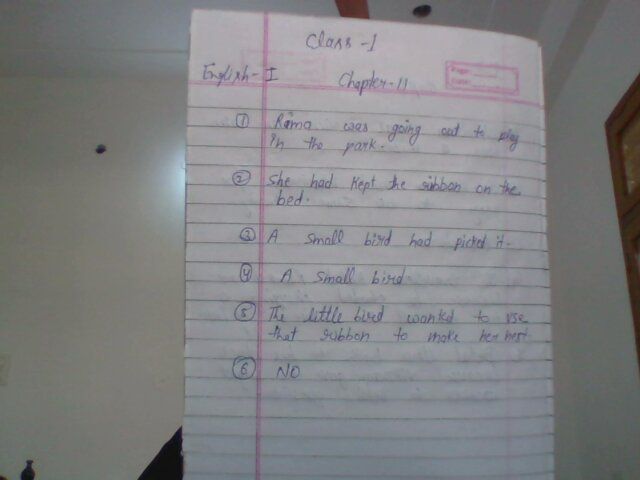 Class - 1
English - I
Chapter - 11
Page:
Date:
① Rama was going out to play
in the park.
② She had kept the ribbon on the
bed.
③ A small bird had picked it.
④ A small bird.
⑤ The little bird wanted to use
that ribbon to make her nest
⑥ NO